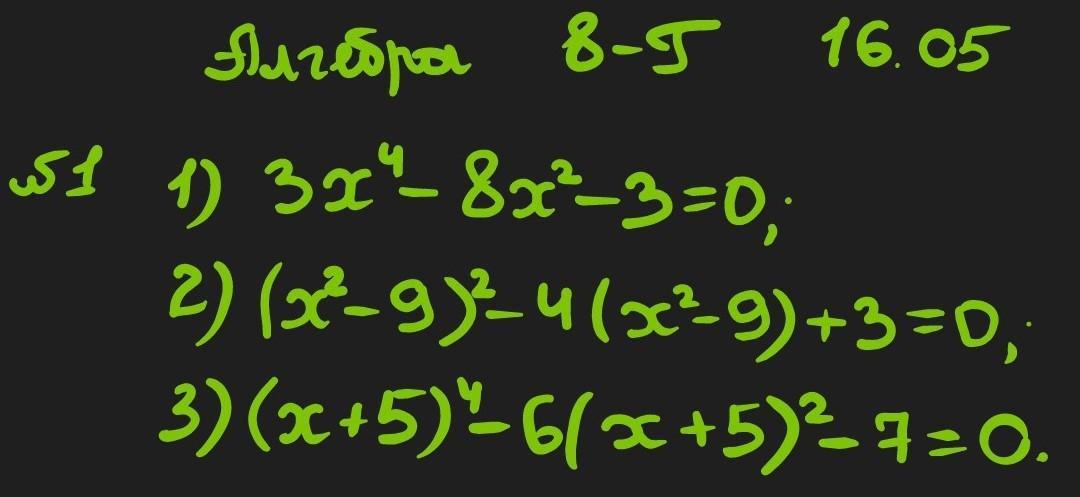 Алгебра 8-Г 16.05
№1 1) 3x⁴ - 8x² - 3 = 0;
2) (x² - 9)² - 4(x² - 9) + 3 = 0;
3) (x + 5)⁴ - 6(x + 5)² - 7 = 0.